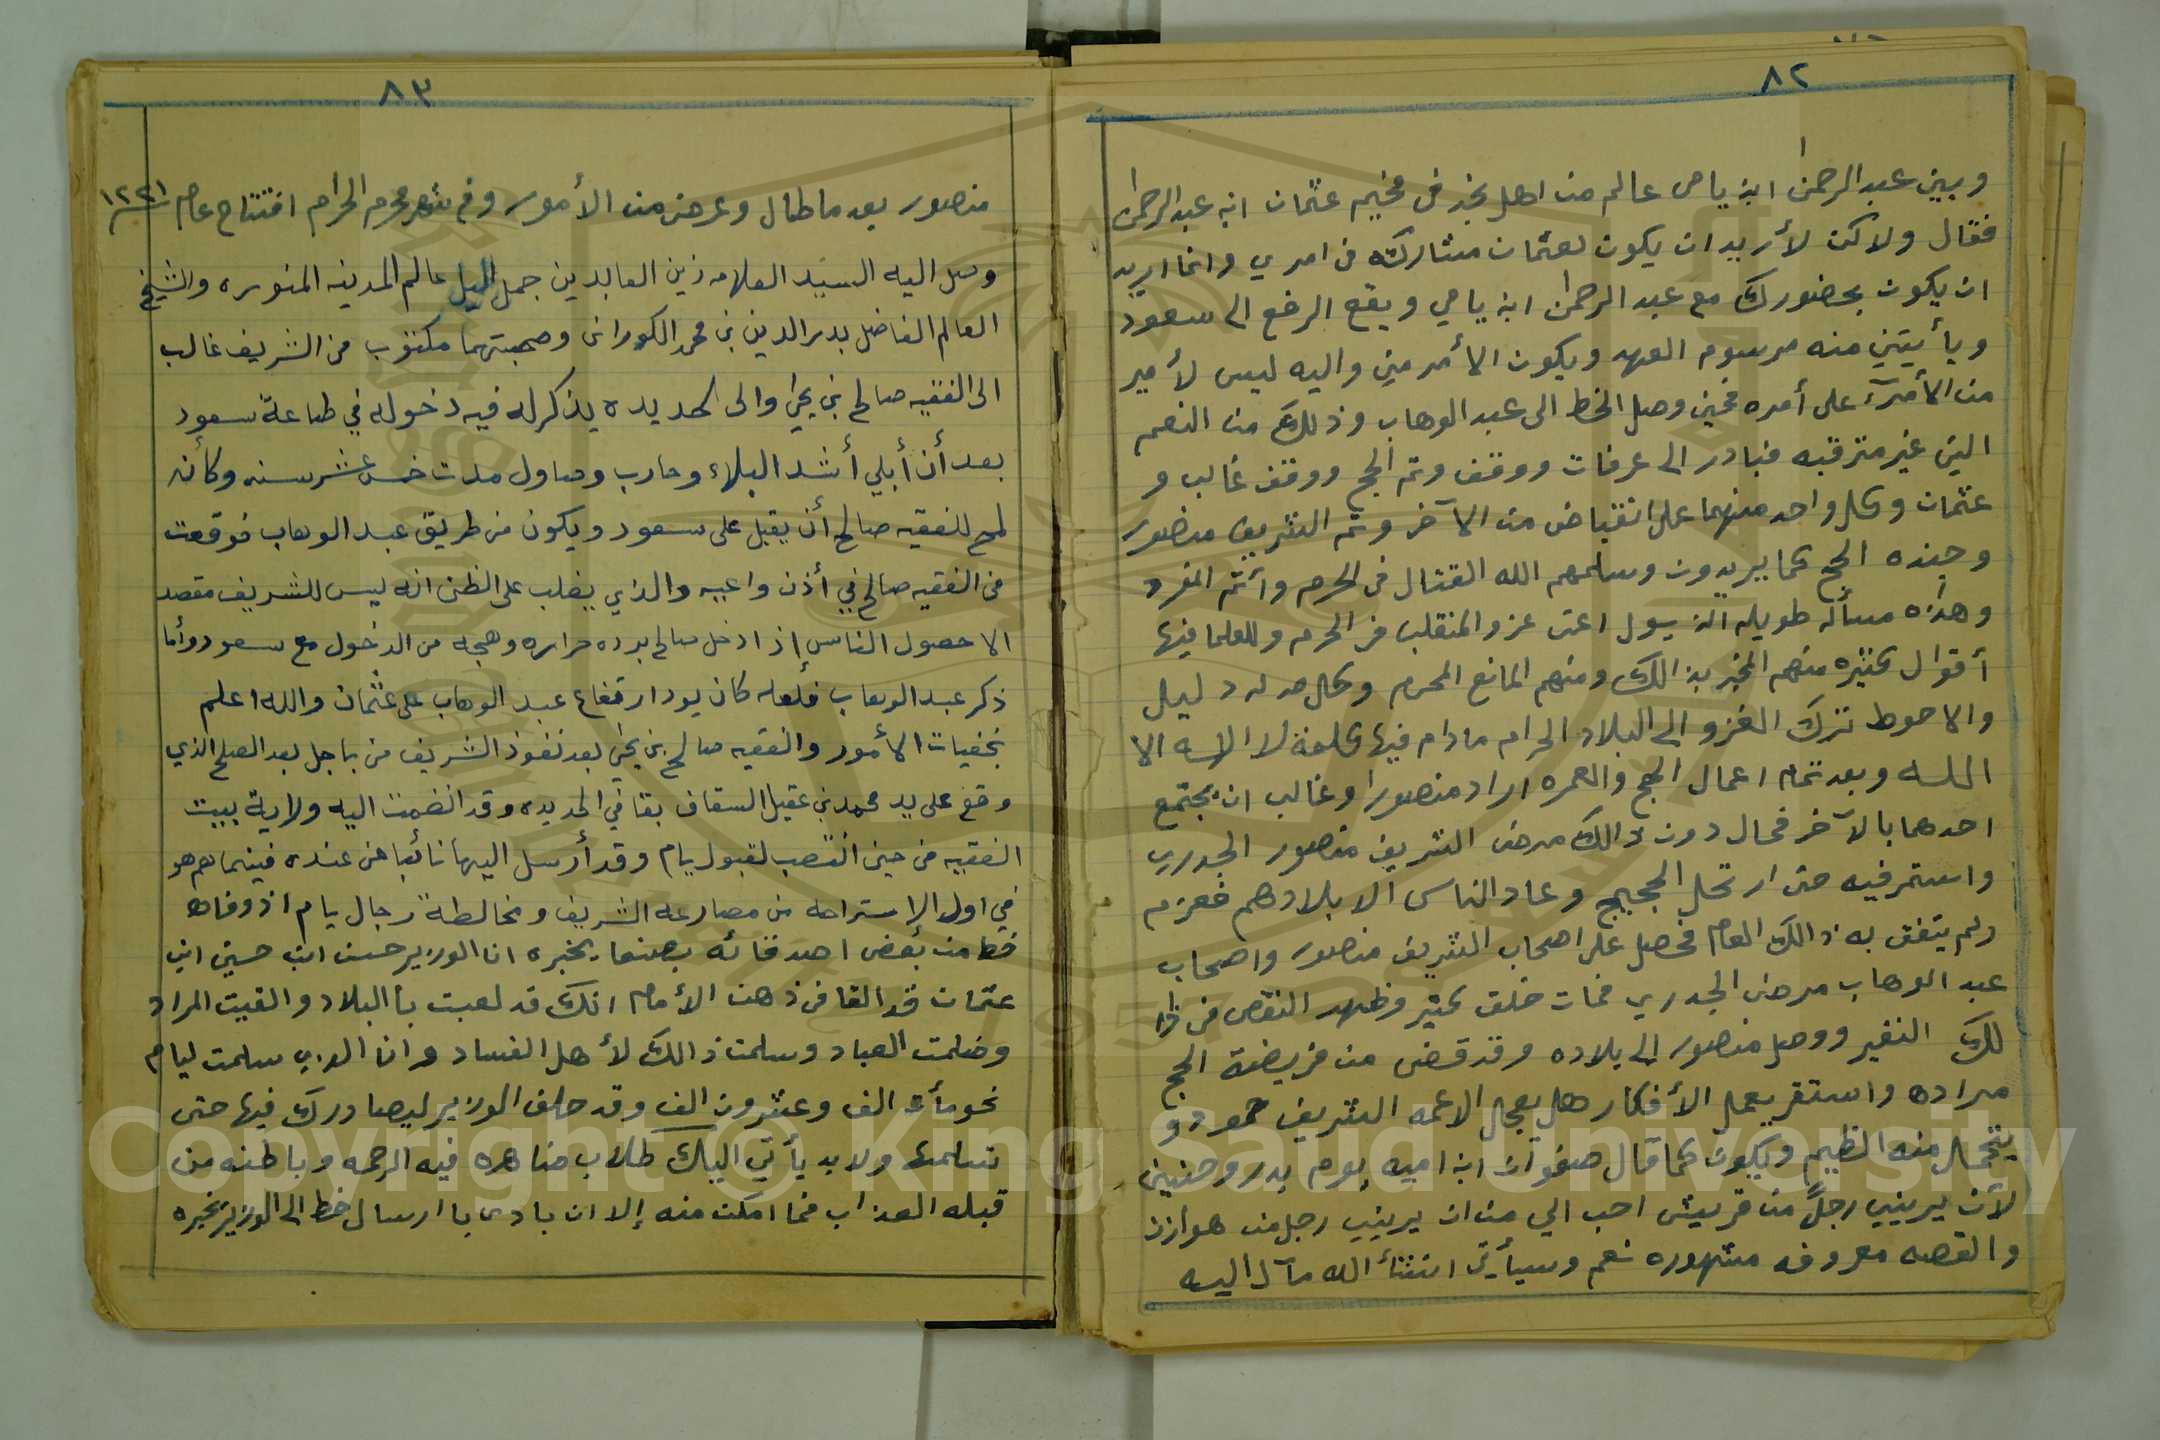 ٨٢
وبين عبد الرحمن ابن يامي عالم من اهل نجد في مخيم عثمان ابن عبد الرحمن
فقال ولاكن لأريد ان يكون لعثمان مشاركه في امري وانما اريد
ان يكون بحضورك مع عبد الرحمن ابن يامي ويقع الرفع الى سعود
ويأتيني منه مرسوم العهد ويكون الأمر مني واليه ليس لأمير
من الأمرآء على أمره فحين وصل الخط الى عبد الوهاب وذلك من النعم
التي غير مترقبه فبادر الى عرفات ووقف وتم الحج ووقف غالب و
عثمان وكل واحد منهما على انقباض من الآخر وتم الشريف منصور
وجنده الحج كما يريدون وسلمهم الله القتال في الحرم وأثم المفرد
وهذه مسأله طويله الذيول اعني غزو المتقلب في الحرم وللعلما فيها
أقوال كثيره منهم المخبر بذالك ومنهم المانع المحرم وكل له دليل
والاحوط ترك الغزو الى البلاد الحرام مادام فيها كلمة لا اله الا
الله وبعد تمام اعمال الحج والعمره اراد منصورا وغالب ان يجتمع
احدهما بالآخر فحال دون ذالك مرض الشريف منصور الجدري
واستمر فيه حتى ارتحل الحجيج وعاد الناس الا بلادهم فعزم
ولم يتفق به ذالك العام فحصل على اصحاب الشريف منصور واصحاب
عبد الوهاب مرض الجدري فمات خلق كثير وظهر النقص في ذا
لك النفير ووصل منصور الى بلاده وقد قضى من فريضة الحج
مراده واستقر يعمل الأفكار هل يعجل الاعمه الشريف حمود و
يتحمل منه الظيم ويكون كما قال صفوان ابن اميه يوم بدر وحنين
لآن يربيني رجلً من قريش احب الي من ان يربيني رجل من هوازن
والقصه معروفه مشهوره نعم وسيأتي انشاء الله مآل اليه
٨٣
منصور بعد ما طال وعرض من الأمور وفي شهر محرم الحرام افتتاح عام ١٢٢١
وصل اليه السيد العلامه زين العابدين جمل الليل عالم المدينه المنوره والشيخ
العالم الفاضل بدر الدين بن محمد الكوراني وصحبتهما مكتوب من الشريف غالب
الى الفقيه صالح بن يحيى والى الحديده يذكر له فيه دخوله في طاعة سعود
بعد أن أبلي أشد البلاء وحارب وصاول مدت خمس عشر سنه وكأنه
لمح للفقيه صالح أن يقبل على سعود ويكون من طريق عبد الوهاب فوقعت
من الفقيه صالح في أذن واعيه والذي يغلب على الظن انه ليس للشريف مقصد
الا حصول الناس إذا دخل صالح برده حراره وهجه من الدخول مع سعود وأما
ذكر عبد الوهاب فلعله كان يود ارتفاع عبد الوهاب على عثمان والله اعلم
بخفيات الأمور والفقيه صالح بن يحيى بعد نفوذ الشريف من باجل بعد الصلح الذي
وقع على يد محمد بن عقيل السقاف بقا في الحديده وقد انضمت اليه ولاية بيت
الفقيه من حين انتصب لقبول يام وقد أرسل اليها نائبا من عنده فبينما هم هو
في اول الإستراحه من مصارعة الشريف ومخالطة رجال يام اذ وفاه
خط من بعض اصدقائه بصنعا يخبره ان الوزير حسن ابن حسين ابن
عثمان قد القا في ذهن الأمام انك قد لعبت بالبلاد والقيت المراد
وضلمت العباد وسلمت ذالك لأهل الفساد وان الذي سلمت ليام
نحو مأة الف وعشرون الف وقد حلف الوزير ليصادرك فيها حتى
تسلمها ولابد يأتي اليك طلاب ضاهره فيه الرحمه وباطنه من
قبله العذاب فما امكن منه إلا ان بادى با ارسال خط الى الوزير يخبره
Copyright © King Saud University